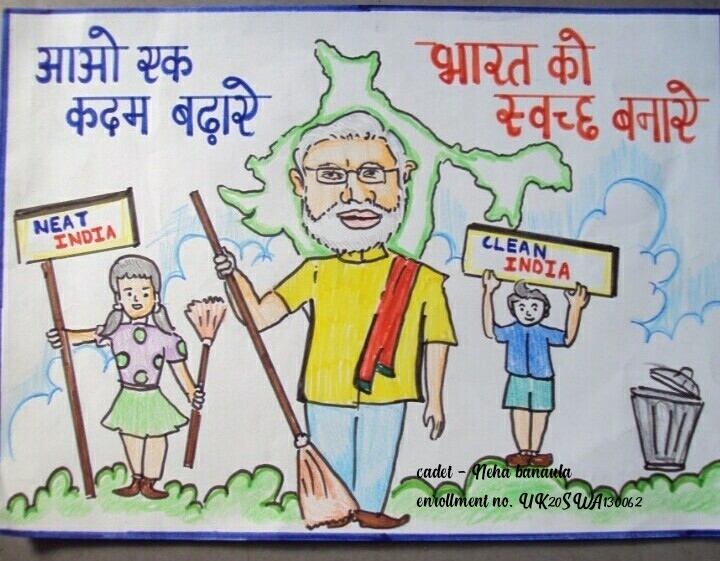 आओ एक
कदम बढ़ाऐ
भारत को
स्वच्छ बनाऐ
NEAT
INDIA
CLEAN
INDIA
cadet - Neha banaula
enrollment no. UK20SWA130062